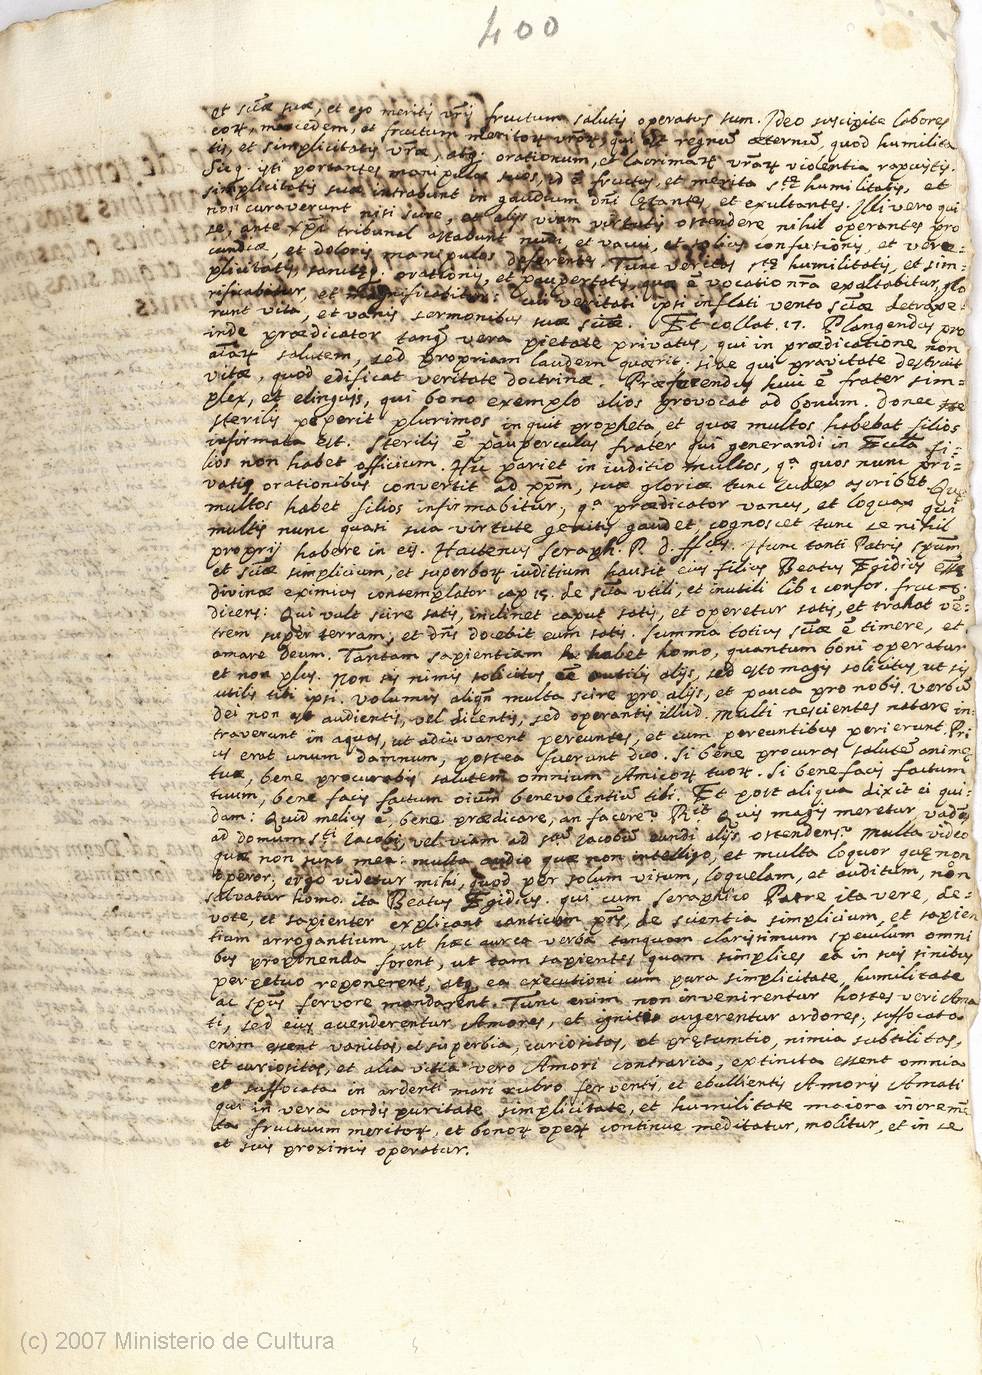 400
et sciã suæ, et ego meritis vrĩs fructum salutis operatus sum. Ideo suscipite labores
coꝝ, mercedem, et fructum meritoꝝ vroꝝ, qui est regnũ æternũ, quod humilita
tis, et simplicitatis vræ, atq. orationum, et lacrimaꝝ vraꝝ violentia rapuistis.
Sicq. isti portantes manipulos suos, id ẽ fructus, et merita stẽ humilitatis, et
simplicitatis suæ intrabunt in gaudium dñi lætantes, et exultantes. Illi vero qui
non curaverunt nisi scire, et alijs viam virtutis ostendere nihil operantes pro
se, ante xp̃i tribunal astabunt nudi, et vacui, et solius confusionis, et vere=
cundiæ, et doloris manipulos deferentes. Tunc veritas stẽ humilitatis, et sim=
plicitatis, sanctæq. orationis, et paupertatis, quæ ẽ vocatio nr̃a exaltabitur, glo
rificabitur, et magnificabitur: cui veritati ipsi inflati vento sciæ detraxe=
runt vita, et vanis sermonibus suæ sciæ. Et collat. 17. Plangendus pro
inde prædicator tanq̃ vera pietate privatus, qui in prædicatione non
aĩaꝝ salutem, sed propriam laudem quærit: sive qui pravitate destruit
vitæ, quod edificat veritate doctrinæ. Præferendus huic ẽ frater sim=
plex, et elinguis, qui bono exemplo alios provocat ad bonum. Donec
sterilis peperit plurimos inquit propheta, et quæ multos habebat filios
infirmata est. Sterilis ẽ pauperculus frater qui generandi in Eccl̃a fi=
lios non habet officium. Hic pariet in iuditio multos, qᵃ quos nunc pri=
vatis orationibus convertit ad xp̃m, suæ gloriæ tunc Iudex ascribet. Quæ
multos habet filios infirmabitur, qᵃ prædicator vanus, et loquax qui
multis nunc quasi sua virtute genitis gaudet, cognoscet tunc se nihil
proprij habere in eis. Hactenus Seraph. P. d. ffcũs. Hunc tanti Patris spũm
et sciæ simplicium, et superboꝝ iuditium hausit eius filius Beatus Egidius
divinæ eximius contemplator cap 15. de sciã utili, et inutili lib 1 confor. fruc. 8.
dicens: Qui vult scire satis, inclinet caput satis, et operetur satis, et trahat vẽ=
trem super terram, et dñs docebit eum satis. Summa totius sciæ ẽ timere, et
amare deum. Tantam sapientiam habet homo, quantum boni operatur
et non plus. Non sis nimis solicitus eẽ utilis alijs, sed esto magis solicitus, ut sis
utilis tibi ipsi. Volumus aliqñ multa scire pro alijs, et pauca pro nobis. Verbũ
dei non est audientis, vel dicentis, sed operantis illud. Multi nescientes natare in=
traverunt in aquas, ut adiuvarent pereuntes, et cum pereuntibus perierunt. Pri
us erat unum damnum, postea fuerunt duo. Si bene procuras salutẽ animę
tuæ, bene procurabis salutem omnium Amicoꝝ tuoꝝ. Si bene facis factum
tuum, bene facis factum oiũm benevolentiũ tibi. Et post aliqua dixit ei qui=
dam: Quid melius ẽ, bene prædicare, an facere? Rit. Quis magis meretur, vadẽs
ad domum Sti Iacobi, vel viam ad stũ Iacobũ eundi alijs ostendens? Multa video
quæ non sunt mea: multa audio quæ non intelligo, et multa loquor quę non
operor; ergo videtur mihi, quod per solum visum, loquelam, et auditum, non
salvatur homo. ita Beatus Egidius. qui cum Seraphico Patre ita vere, de=
vote, et sapienter explicant canticum pñs, de scientia simplicium, et sapien
tium arrogantium, ut hæc aurea verba tanquam clarissimum speculum omni
bus proponenda forent, ut tam sapientes quam simplices ea in suis sinibus
perpetuo reponerent, atq. ea executioni cum pura simplicitate, humilitate
ac spũs fervore mandarent. Tunc enim non invenirentur hostes veri Ama
ti, sed eius avenderentur Amores, et igniti augerentur ardores; suffocata
enim essent vanitas, et superbia, curiositas, et præsumtio, nimia subtilitas,
et curiositas, et alia vitia vero Amori contraria, extincta essent omnia
et suffocata in ardenti mari rubro ferventis, et ebullientis Amoris Amati
qui in vera cordis puritate simplicitate, et humilitate maiora increm̃e
ta fructuum meritoꝝ, et bonoꝝ opeꝝ continue meditatur, molitur, et in se
et suis proximis operatur.
(c) 2007 Ministerio de Cultura